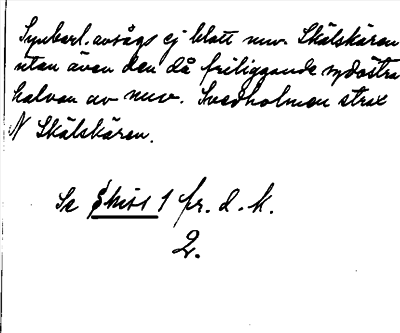 Synbarl. avsågs ej blott nuv. Skälskären
utan även den då friliggande sydöstra
halvan av nuv. Svedholmen strax
N Skälskären.
Se skiss 1 fr. d. k.
2.